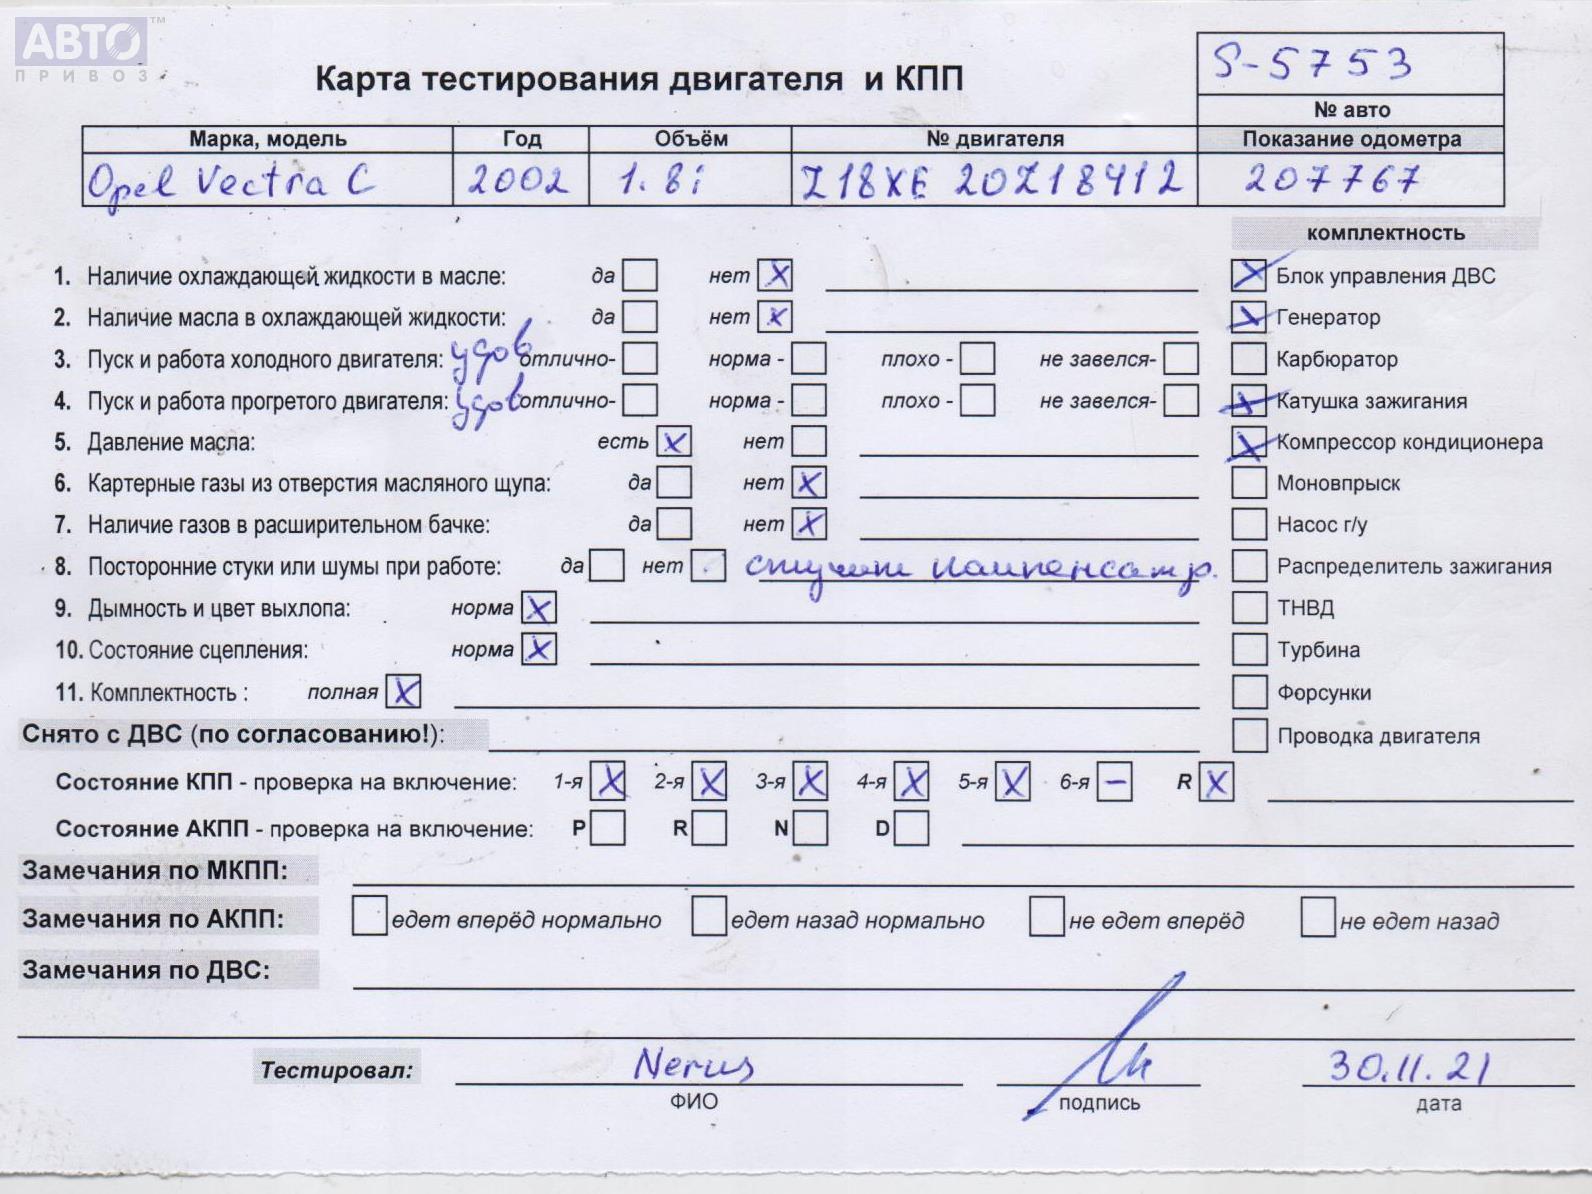 АВТО™
ПРИВОЗ
Карта тестирования двигателя и КПП
S-5753
№ авто
Марка, модель Год Объём № двигателя Показание одометра
Opel Vectra C 2002 1.8i Z18XE 20Z18412 207767
комплектность
1. Наличие охлаждающей жидкости в масле: да нет X
Блок управления ДВС
2. Наличие масла в охлаждающей жидкости: да нет X
Генератор
3. Пуск и работа холодного двигателя: удов отлично- норма - плохо - не завелся-
Карбюратор
4. Пуск и работа прогретого двигателя: удов отлично- норма - плохо - не завелся-
Катушка зажигания
5. Давление масла: есть X нет
Компрессор кондиционера
6. Картерные газы из отверстия масляного щупа: да нет X
Моновпрыск
7. Наличие газов в расширительном бачке: да нет X
Насос г/у
8. Посторонние стуки или шумы при работе: да нет стучат компенсатр.
Распределитель зажигания
9. Дымность и цвет выхлопа: норма X
ТНВД
10. Состояние сцепления: норма X
Турбина
11. Комплектность : полная X
Форсунки
Снято с ДВС (по согласованию!):
Проводка двигателя
Состояние КПП - проверка на включение: 1-я X 2-я X 3-я X 4-я X 5-я X 6-я – R X
Состояние АКПП - проверка на включение: P R N D
Замечания по МКПП:
Замечания по АКПП: едет вперёд нормально едет назад нормально не едет вперёд не едет назад
Замечания по ДВС:
Тестировал: Nerus 30.11.21
ФИО подпись дата